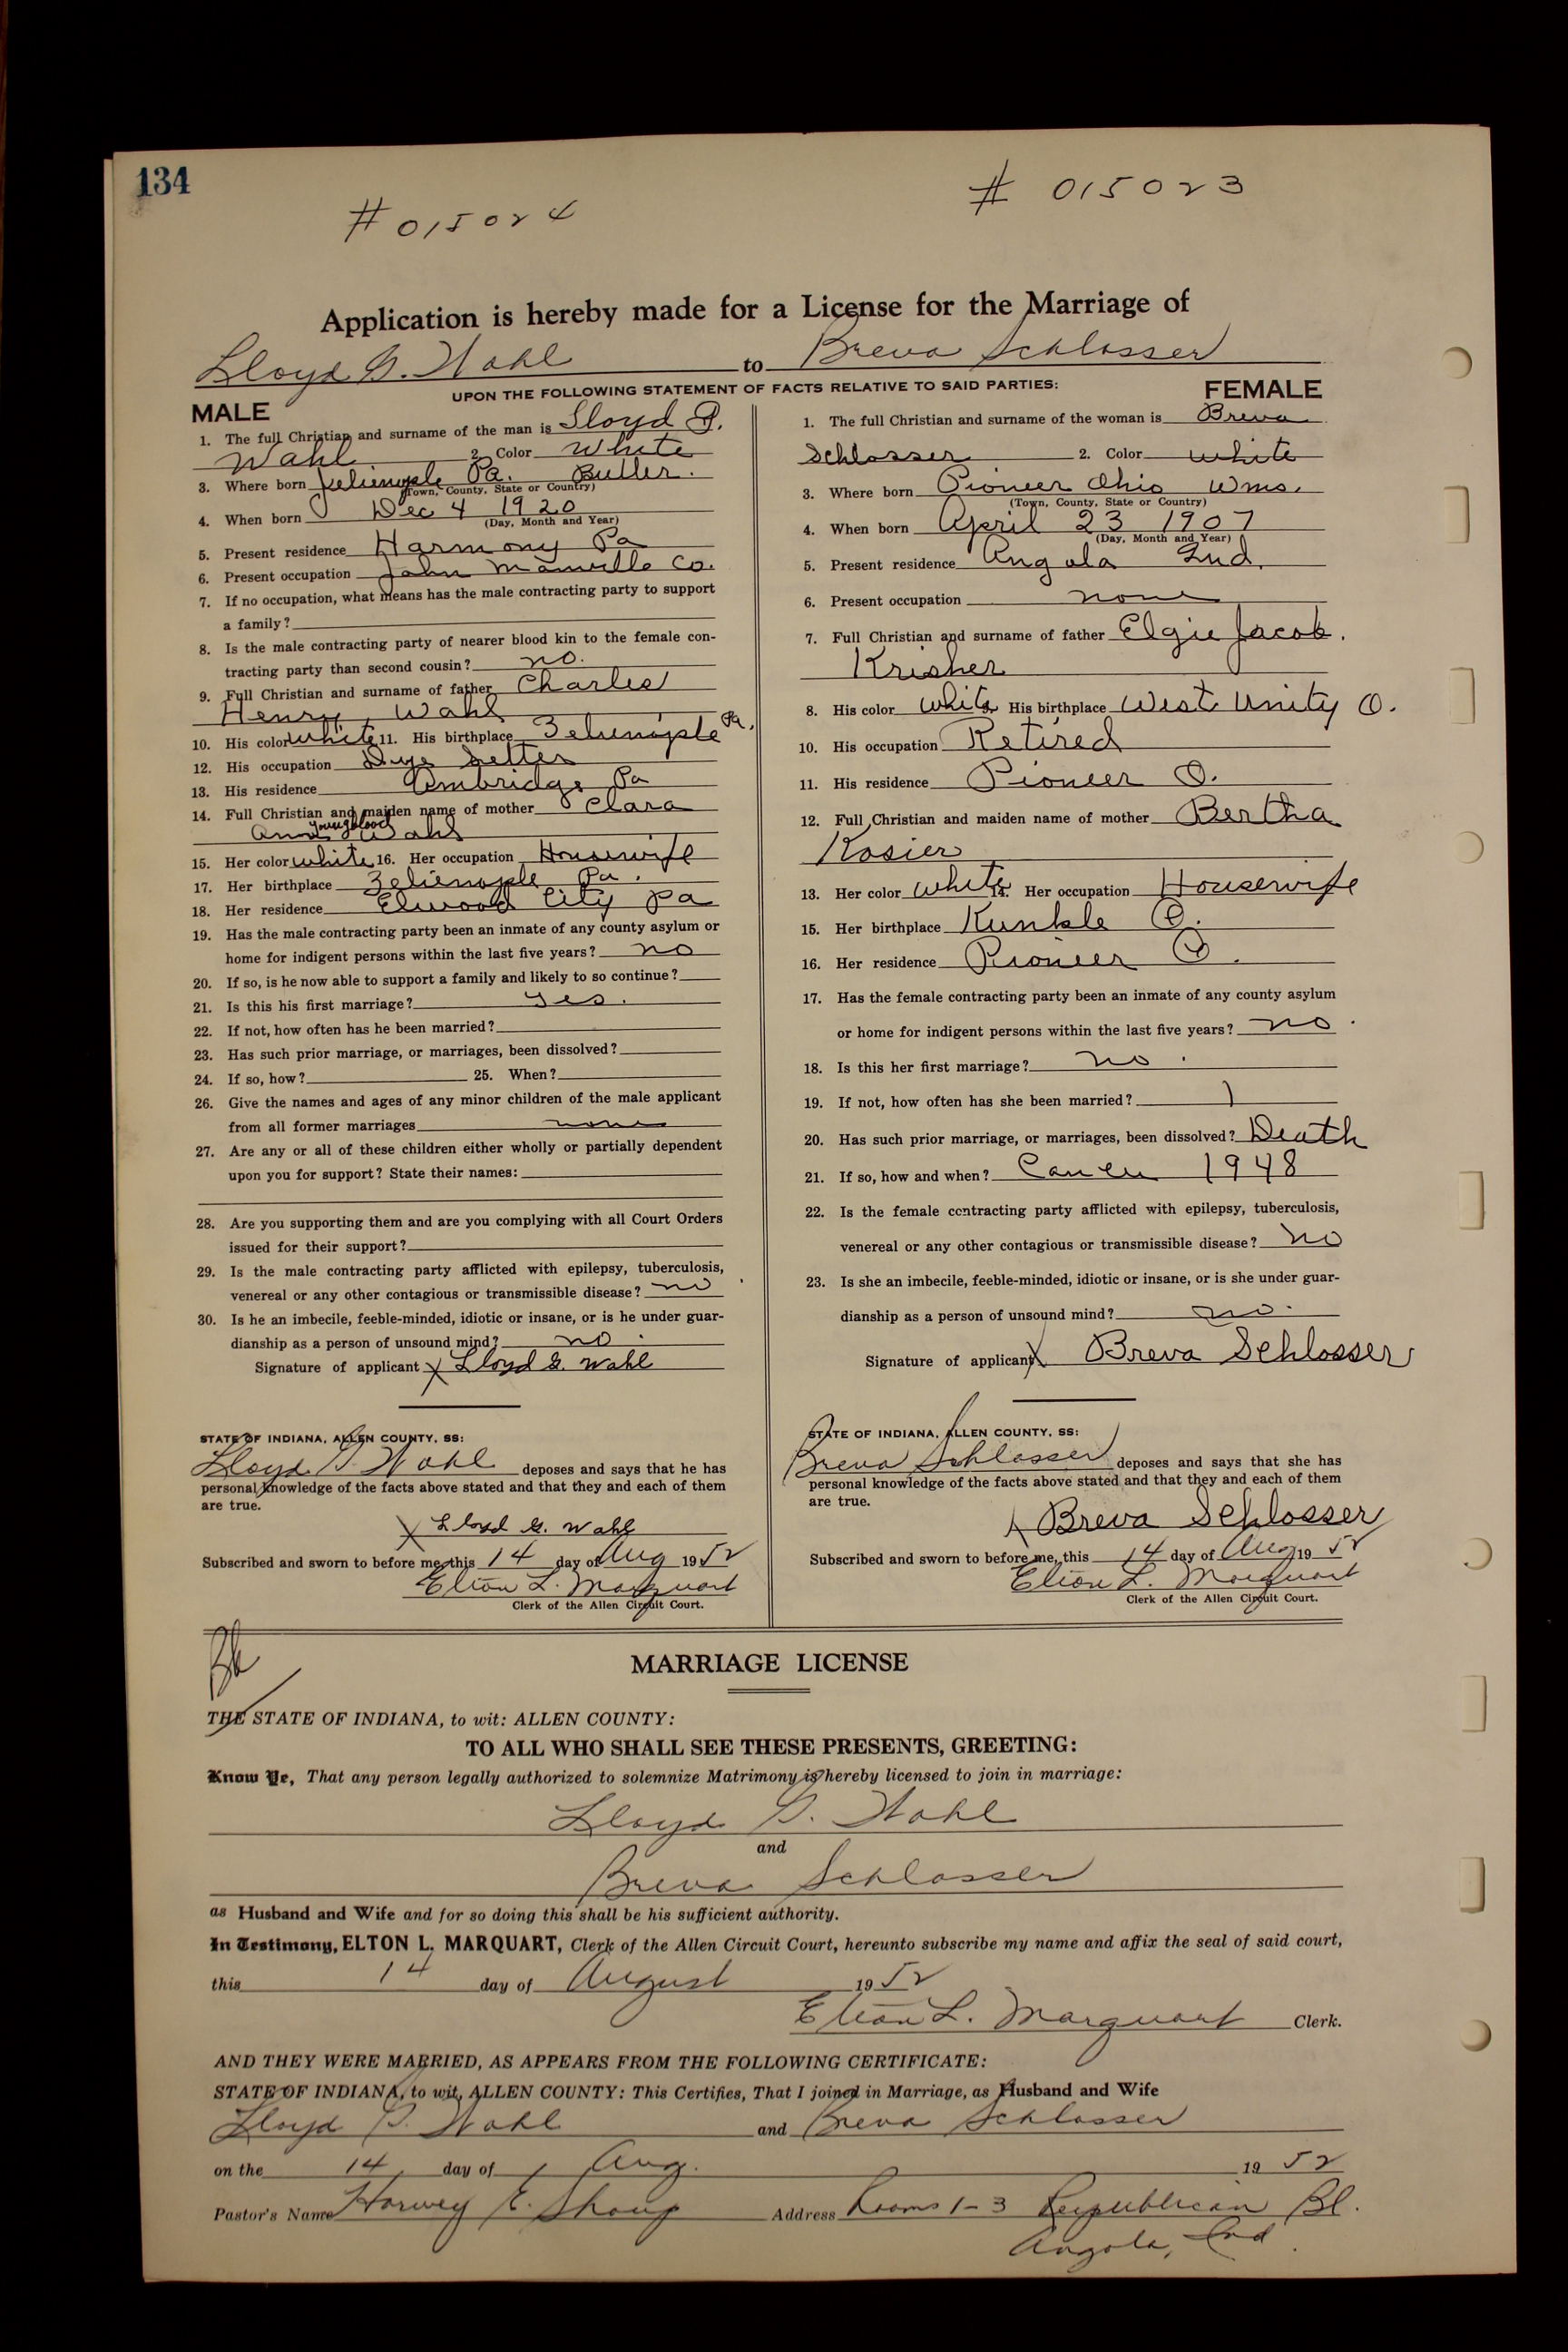 134
# 015024
# 015023
Application is hereby made for a License for the Marriage of
Lloyd G. Wahl to Breva Schlosser
UPON THE FOLLOWING STATEMENT OF FACTS RELATIVE TO SAID PARTIES:
MALE
1. The full Christian and surname of the man is Lloyd G.
Wahl 2. Color White
3. Where born Zelienople Pa. Butler.
(Town, County, State or Country)
4. When born Dec 4 1920
(Day, Month and Year)
5. Present residence Harmony Pa
6. Present occupation John Manville Co.
7. If no occupation, what means has the male contracting party to support
a family?
8. Is the male contracting party of nearer blood kin to the female con-
tracting party than second cousin? no.
9. Full Christian and surname of father Charles
Henry Wahl
10. His color white 11. His birthplace Zelienople Pa.
12. His occupation Dye Setter
13. His residence Ambridge Pa
14. Full Christian and maiden name of mother Clara
Ann Youngblood Wahl
15. Her color white 16. Her occupation Housewife
17. Her birthplace Zelienople Pa.
18. Her residence Elwood City Pa
19. Has the male contracting party been an inmate of any county asylum or
home for indigent persons within the last five years? no
20. If so, is he now able to support a family and likely to so continue?
21. Is this his first marriage? yes.
22. If not, how often has he been married?
23. Has such prior marriage, or marriages, been dissolved?
24. If so, how? 25. When?
26. Give the names and ages of any minor children of the male applicant
from all former marriages none
27. Are any or all of these children either wholly or partially dependent
upon you for support? State their names:
28. Are you supporting them and are you complying with all Court Orders
issued for their support?
29. Is the male contracting party afflicted with epilepsy, tuberculosis,
venereal or any other contagious or transmissible disease? no
30. Is he an imbecile, feeble-minded, idiotic or insane, or is he under guar-
dianship as a person of unsound mind? no.
Signature of applicant X Lloyd G. Wahl
STATE OF INDIANA, ALLEN COUNTY, SS:
Lloyd G Wahl deposes and says that he has
personal knowledge of the facts above stated and that they and each of them
are true.
X Lloyd G. Wahl
Subscribed and sworn to before me, this 14 day of Aug 1952
Elton L. Marquart
Clerk of the Allen Circuit Court.
FEMALE
1. The full Christian and surname of the woman is Breva
Schlosser 2. Color white
3. Where born Pioneer Ohio Wms.
(Town, County, State or Country)
4. When born April 23 1907
(Day, Month and Year)
5. Present residence Angola Ind.
6. Present occupation none
7. Full Christian and surname of father Elgie Jacob.
Krisher
8. His color white His birthplace West Unity O.
10. His occupation Retired
11. His residence Pioneer O.
12. Full Christian and maiden name of mother Bertha
Kosier
13. Her color white 14. Her occupation Housewife
15. Her birthplace Kunkle O.
16. Her residence Pioneer O.
17. Has the female contracting party been an inmate of any county asylum
or home for indigent persons within the last five years? no.
18. Is this her first marriage? no.
19. If not, how often has she been married? 1
20. Has such prior marriage, or marriages, been dissolved? Death
21. If so, how and when? Cancer 1948
22. Is the female contracting party afflicted with epilepsy, tuberculosis,
venereal or any other contagious or transmissible disease? no
23. Is she an imbecile, feeble-minded, idiotic or insane, or is she under guar-
dianship as a person of unsound mind? no.
Signature of applicant X Breva Schlosser
STATE OF INDIANA, ALLEN COUNTY, SS:
Breva Schlosser deposes and says that she has
personal knowledge of the facts above stated and that they and each of them
are true.
X Breva Schlosser
Subscribed and sworn to before me, this 14 day of Aug 1952
Elton L. Marquart
Clerk of the Allen Circuit Court.
MARRIAGE LICENSE
THE STATE OF INDIANA, to wit: ALLEN COUNTY:
TO ALL WHO SHALL SEE THESE PRESENTS, GREETING:
Know Ye, That any person legally authorized to solemnize Matrimony is hereby licensed to join in marriage:
Lloyd G. Wahl
and
Breva Schlosser
as Husband and Wife and for so doing this shall be his sufficient authority.
In Testimony, ELTON L. MARQUART, Clerk of the Allen Circuit Court, hereunto subscribe my name and affix the seal of said court,
this 14 day of August 1952
Elton L. Marquart Clerk.
AND THEY WERE MARRIED, AS APPEARS FROM THE FOLLOWING CERTIFICATE:
STATE OF INDIANA, to wit, ALLEN COUNTY: This Certifies, That I joined in Marriage, as Husband and Wife
Lloyd G. Wahl and Breva Schlosser
on the 14 day of Aug. 1952
Pastor's Name Harvey E. Shoup Address Rooms 1-3 Republican Bl.
Angola, Ind.